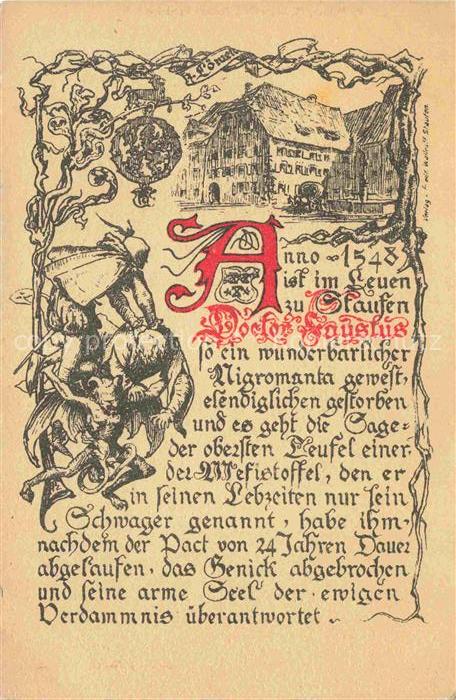 z. Löwen
Anno - 1548
ist im Leuen
zu Staufen
Doctor Faustus
so ein wunderbarlicher
Nigromanta gewest,
elendiglichen gestorben
und es geht die Sage-
der obersten Teufel einer-
der Mefistoffel, den er
in seinen Lebzeiten nur sein
Schwager genannt, habe ihm-
nachdem der Pact von 24 Jahren Dauer
abgelaufen, das Genick abgebrochen
und seine arme Seel' der ewigen
Verdammnis überantwortet.